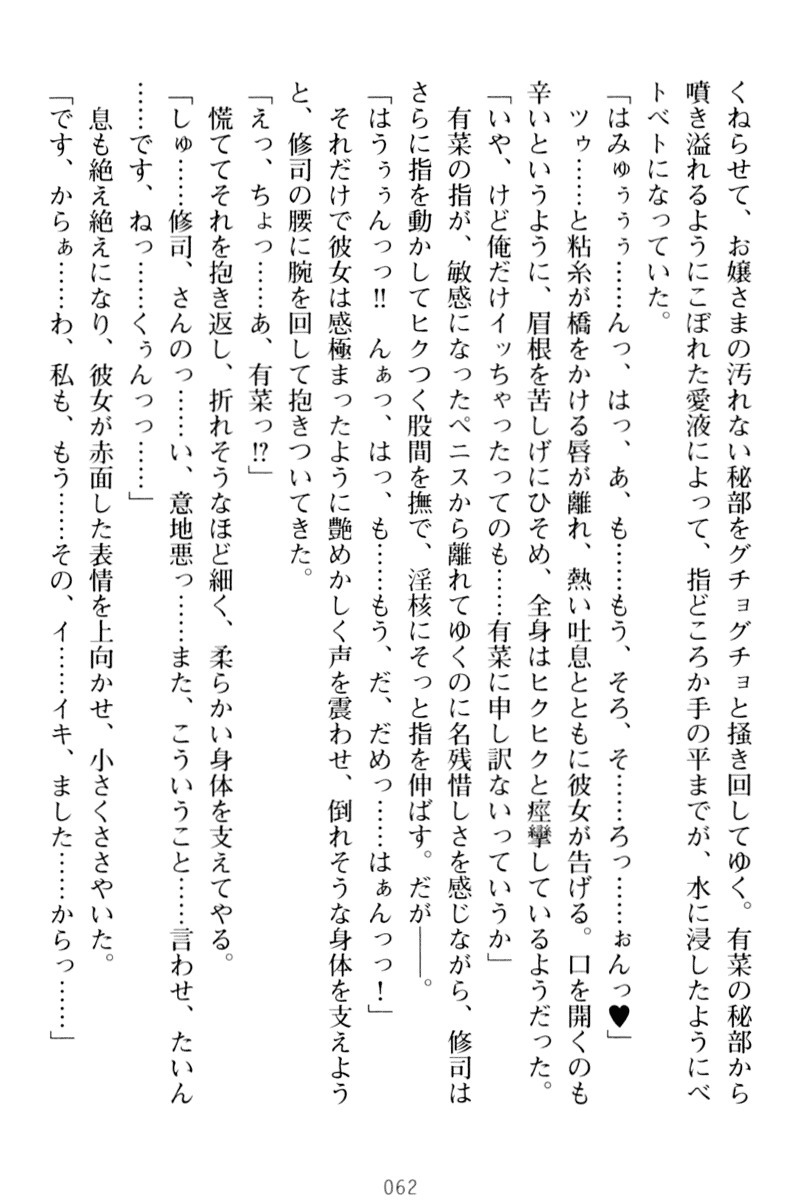 くねらせて、お嬢さまの汚れない秘部をグチョグチョと掻き回してゆく。有菜の秘部から
噴き溢れるようにこぼれた愛液によって、指どころか手の平までが、水に浸したようにベ
トベトになっていた。
「はみゅぅぅぅ……んっ、はっ、あ、も……もう、そろ、そ……ろっ……ぉんっ♥」
ツゥ……と粘糸が橋をかける唇が離れ、熱い吐息とともに彼女が告げる。口を開くのも
辛いというように、眉根を苦しげにひそめ、全身はヒクヒクと痙攣しているようだった。
「いや、けど俺だけイッちゃったってのも……有菜に申し訳ないっていうか」
有菜の指が、敏感になったペニスから離れてゆくのに名残惜しさを感じながら、修司は
さらに指を動かしてヒクつく股間を撫で、淫核にそっと指を伸ばす。だが――。
「はうぅぅんっっ!! んぁっ、はっ、も……もう、だ、だめっ……はぁんっっ！」
それだけで彼女は感極まったように艶めかしく声を震わせ、倒れそうな身体を支えよう
と、修司の腰に腕を回して抱きついてきた。
「えっ、ちょっ……あ、有菜っ!?」
慌ててそれを抱き返し、折れそうなほど細く、柔らかい身体を支えてやる。
「しゅ……修司、さんのっ……い、意地悪っ……また、こういうこと……言わせ、たいん
……です、ねっ……くぅんっっ……」
息も絶え絶えになり、彼女が赤面した表情を上向かせ、小さくささやいた。
「です、からぁ……わ、私も、もう……その、イ……イキ、ました……からっ……」
062